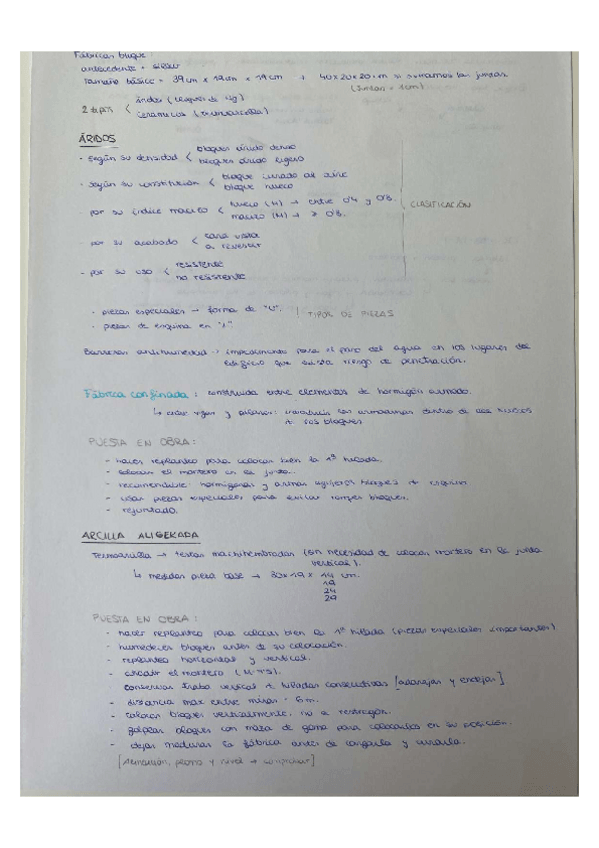 Fábricas bloque:
antecedente = sillar
tamaño básico = 39cm x 19cm x 19cm 40x20x20cm si sumamos las juntas
(juntas = 1cm)
2 tipos < áridos
cerámicos (termoarcilla)
ÁRIDOS
- Según su densidad < bloques árido denso
bloques árido ligero
- Según su constitución < bloque curado al aire
bloque hueco
- por su índice macizo < hueco (H) → entre 0'4 y 0'8.
macizo (M) → > 0'8.
CLASIFICACIÓN
- por su acabado < cara vista
a revestir
- por su uso < resistente
no resistente
- piezas especiales → forma de "U".
- piezas de esquina en "L"
TIPOS DE PIEZAS
Barreras antihumedad → impedimento para el paso del agua en los lugares del
edificio que exista riesgo de penetración.
Fábrica confinada: construida entre elementos de hormigón armado.
↳ entre vigas y pilares: las armaduras dentro de los huecos
de los bloques
PUESTA EN OBRA:
- hacer replanteo para colocar bien la 1ª hilada.
- colocar el mortero en la junta...
- recomendable: hormigonar y armar
- usar piezas especiales para evitar romper bloques.
- rejuntado.
ARCILLA ALIGERADA
Termoarcilla → testas machihembradas (sin necesidad de colocar mortero en la junta
vertical).
↳ medidas pieza base → 30x19x 14 cm.
19
24
29
PUESTA EN OBRA:
- hacer replanteo para colocar bien la 1ª hilada (piezas especiales importantes)
- humedecer bloques antes de su colocación.
- replanteo horizontal y vertical.
- añadir el mortero (M-7'5).
- conservar traba vertical de hiladas consecutivas [adarajas y endejas]
- distancia max entre miras = 6m.
- colocar bloques verticalmente, no a restregón.
- golpear bloques con maza de goma para colocarlos en su posición.
- dejar madurar la fábrica antes de
[Alineación, plomo y nivel → comprobar]